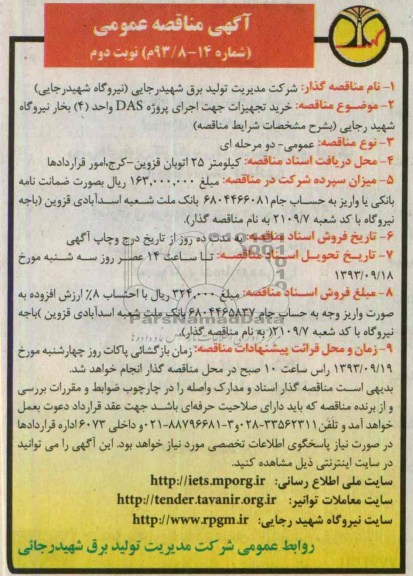 آگهی مناقصه عمومی
(شماره ۱۴-۹۳/۸م) نوبت دوم
۱- نام مناقصه گذار: شرکت مدیریت تولید برق شهیدرجایی (نیروگاه شهیدرجایی)
۲- موضـوع مناقصه: خرید تجهیزات جهت اجرای پروژه DAS واحد (۴) بخار نیروگاه
شهید رجایی (بشرح مشخصات شرایط مناقصه)
۳- نوع مناقصه: عمومی- دو مرحله ای
۴- محل دریافت اسناد مناقصه: کیلومتر ۲۵ اتوبان قزوین-کرج،امور قراردادها
۵- میزان سپرده شرکت در مناقصه: مبلغ ۱۶۳,۰۰۰,۰۰۰ ریال بصورت ضمانت نامه
بانکی یا واریز به حساب جام۶۸۰۴۴۶۶۰۸۱ بانک ملت شـعبه اسـدآبادی قزوین (باجه
نیروگاه با کد شعبه ۲۱۰۹/۷ به نام مناقصه گذار).
۶- تاریخ فروش اسناد مناقصه: به مدت ده روز از تاریخ درج وچاپ آگهی
۷- تاریـخ تحویـل اسـناد مناقصـه: تـا سـاعت ۱۴ عصـر روز سه شـنبه مورخ
۱۳۹۳/۰۹/۱۸
۸- مبلغ فروش اسـناد مناقصه: مبلغ ۳۲۴,۰۰۰ ریال با احتساب ۸٪ ارزش افزوده به
صورت واریز وجه به حساب جام ۶۸۰۴۴۶۵۸۳۷ بانک ملت شعبه اسدآبادی قزوین )باجه
نیروگاه با کد شعبه ۲۱۰۹/۷( به نام مناقصه گذار).
ParsNamadData
۹- زمان و محل قرائت پیشنهادات مناقصه: زمان بازگشائی پاکات روز چهارشنبه مورخ
۱۳۹۳/۰۹/۱۹ راس ساعت ۱۰ صبح در محل مناقصه گذار انجام خواهد شد.
بدیهی است مناقصه گذار اسناد و مدارک واصله را در چارچوب ضوابط و مقررات بررسی
و از برنده مناقصه که باید دارای صلاحیت حرفه‌ای باشـد جهت عقد قرارداد دعوت بعمل
خواهد آمد و تلفن ۳۳۵۶۲۳۱۱-۰۲۸و۳-۸۸۷۹۶۶۸۱-۰۲۱ و داخلی ۶۰۷۳ اداره قراردادها
در صورت نیاز پاسخگوی اطلاعات تخصصی مورد نیاز خواهد بود. این آگهی را می توانید
در سایت اینترنتی ذیل مشاهده کنید.
سایت ملی اطلاع رسانی: http://iets.mporg.ir
سایت معاملات توانیر: http://tender.tavanir.org.ir
سایت نیروگاه شهید رجایی: http://www.rpgm.ir
روابط عمومی شرکت مدیریت تولید برق شهیدرجائی